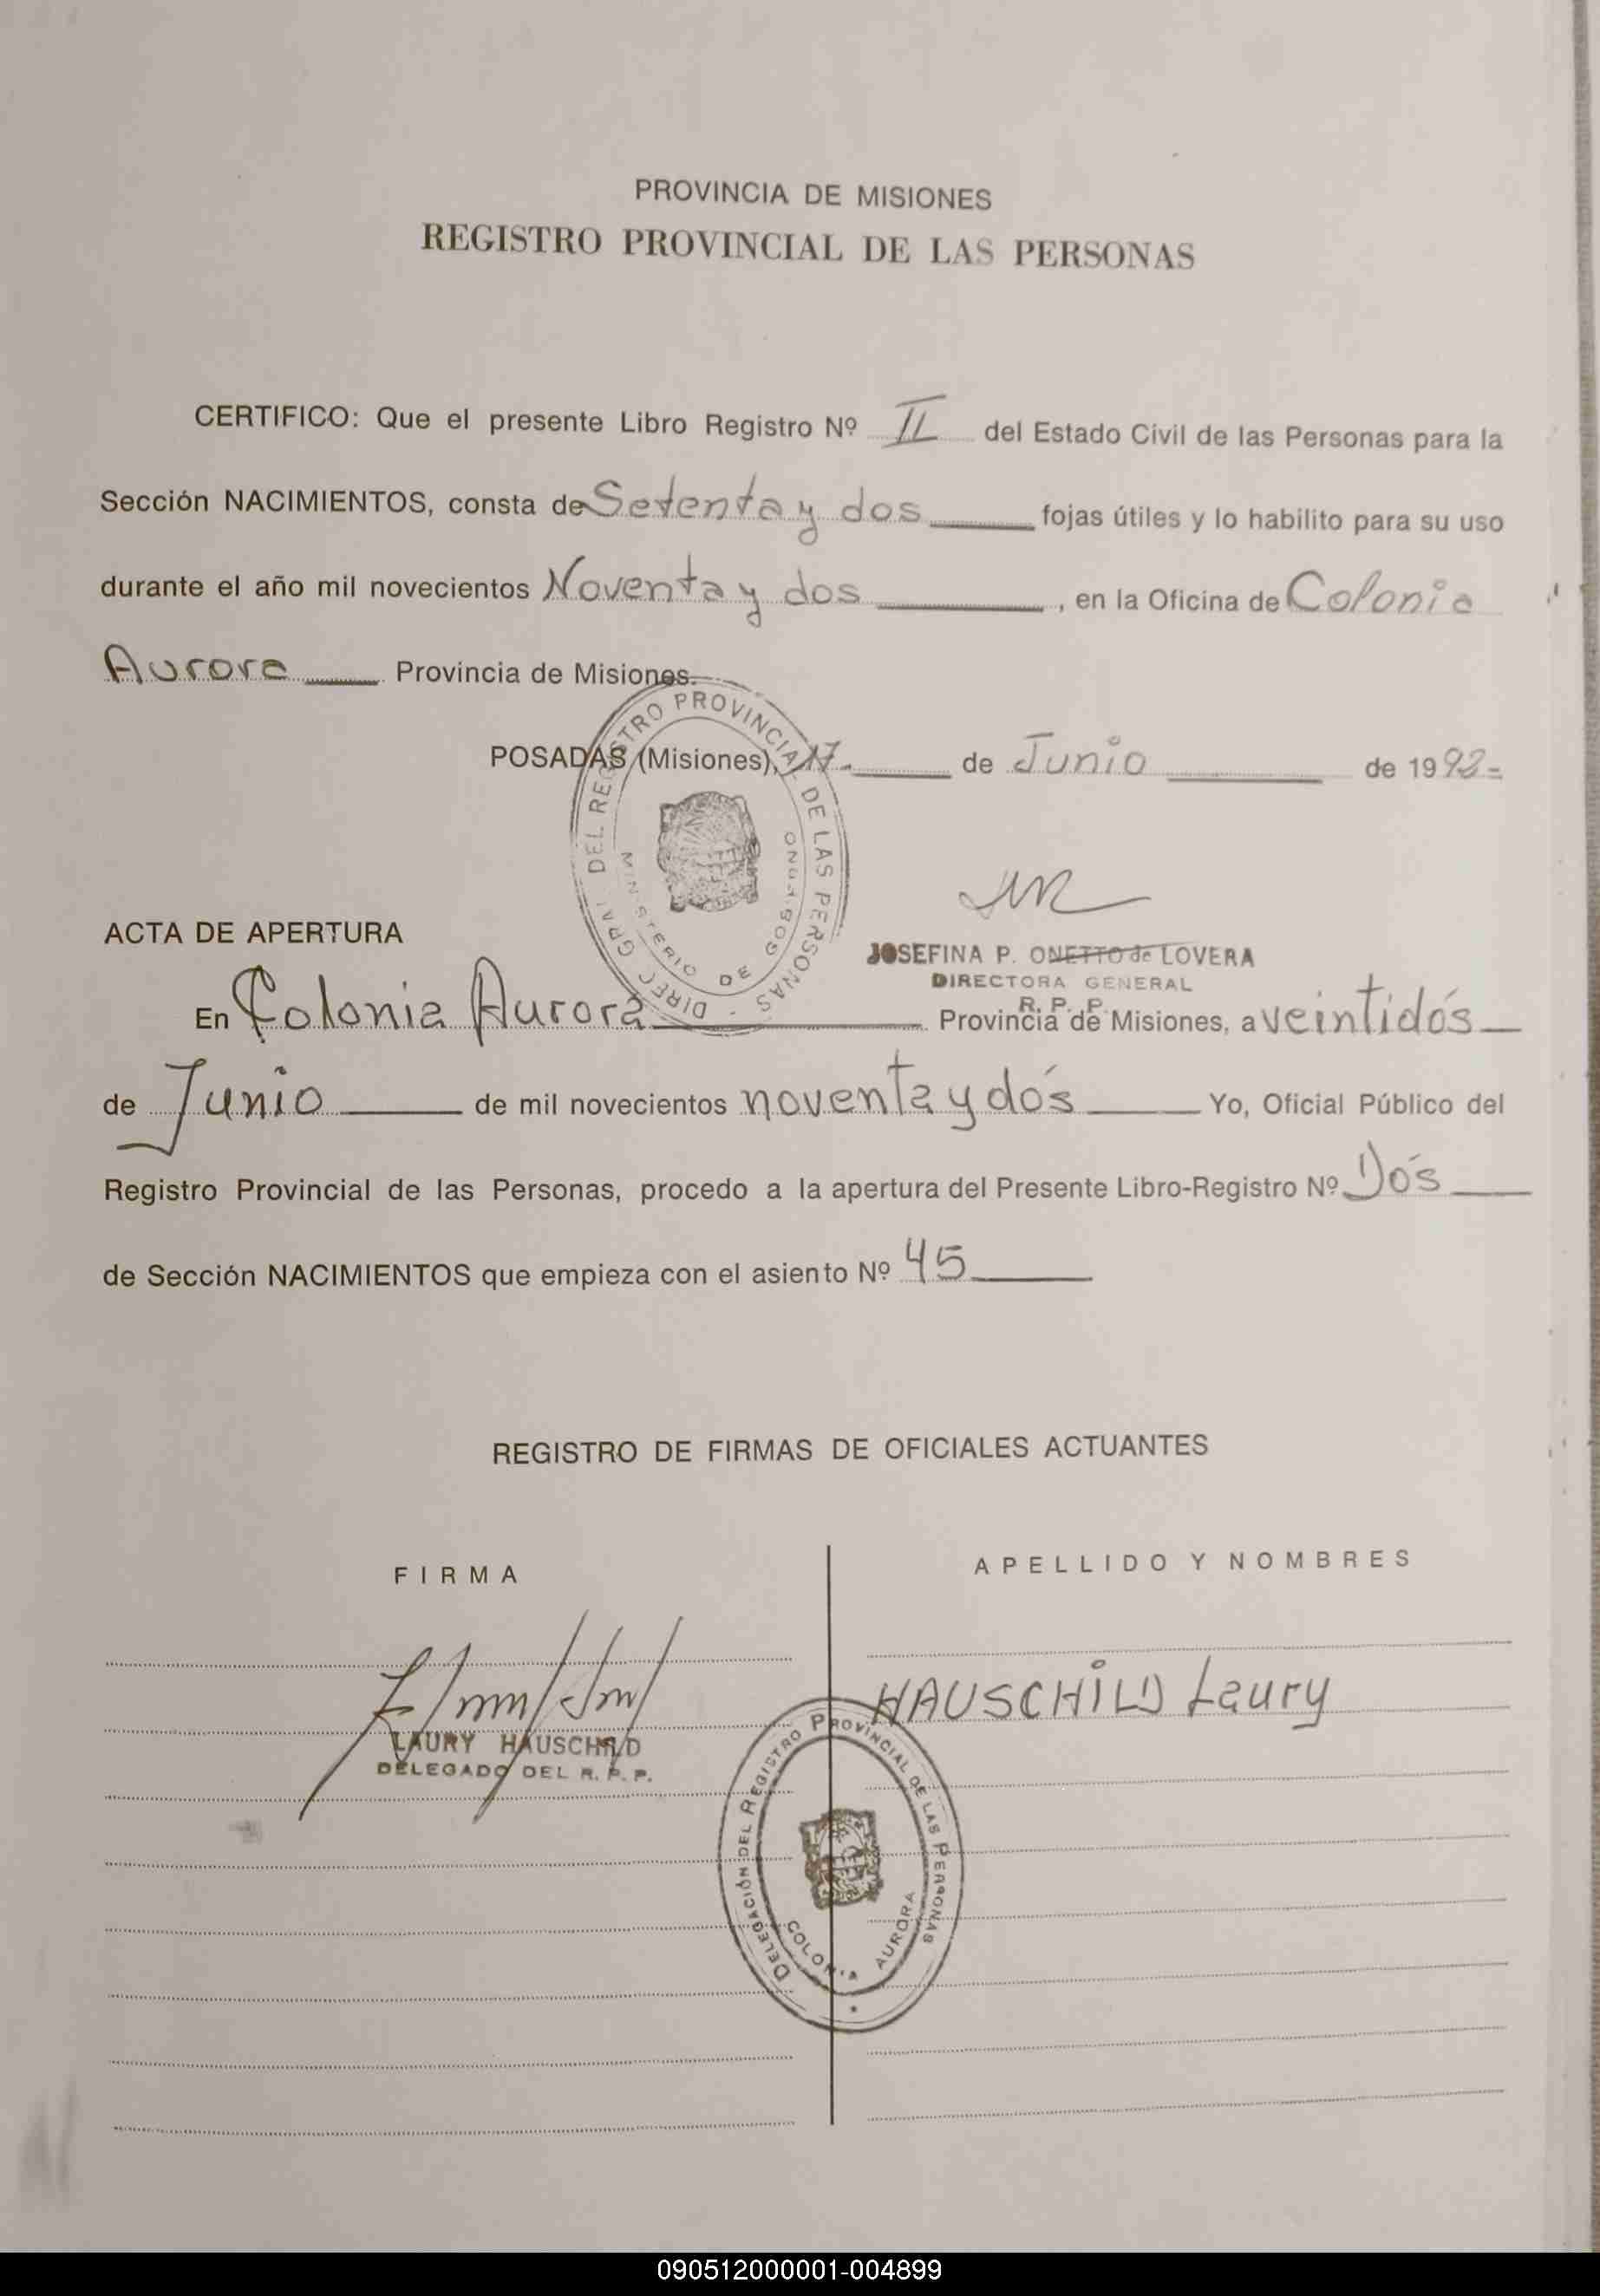 PROVINCIA DE MISIONES
REGISTRO PROVINCIAL DE LAS PERSONAS
CERTIFICO: Que el presente Libro Registro Nº II del Estado Civil de las Personas para la
Sección NACIMIENTOS, consta de Setenta y dos fojas útiles y lo habilito para su uso
durante el año mil novecientos Noventa y dos, en la Oficina de Colonia
Aurora Provincia de Misiones.
POSADAS (Misiones), 17 de Junio de 1992-
DIREC. GRAL. DEL REGISTRO PROVINCIAL DE LAS PERSONAS -
MINISTERIO DE GOBIERNO
JOSEFINA P. ONETTO de LOVERA
DIRECTORA GENERAL
R. P. P.
ACTA DE APERTURA
En Colonia Aurora Provincia de Misiones, a veintidós
de Junio de mil novecientos noventa y dós Yo, Oficial Público del
Registro Provincial de las Personas, procedo a la apertura del Presente Libro-Registro Nº Dós
de Sección NACIMIENTOS que empieza con el asiento Nº 45
REGISTRO DE FIRMAS DE OFICIALES ACTUANTES
FIRMA APELLIDO Y NOMBRES
HAUSCHILD Laury
LAURY HAUSCHILD
DELEGADO DEL R. P. P.
DELEGACIÓN DEL REGISTRO PROVINCIAL DE LAS PERSONAS
COLONIA AURORA
090512000001-004899